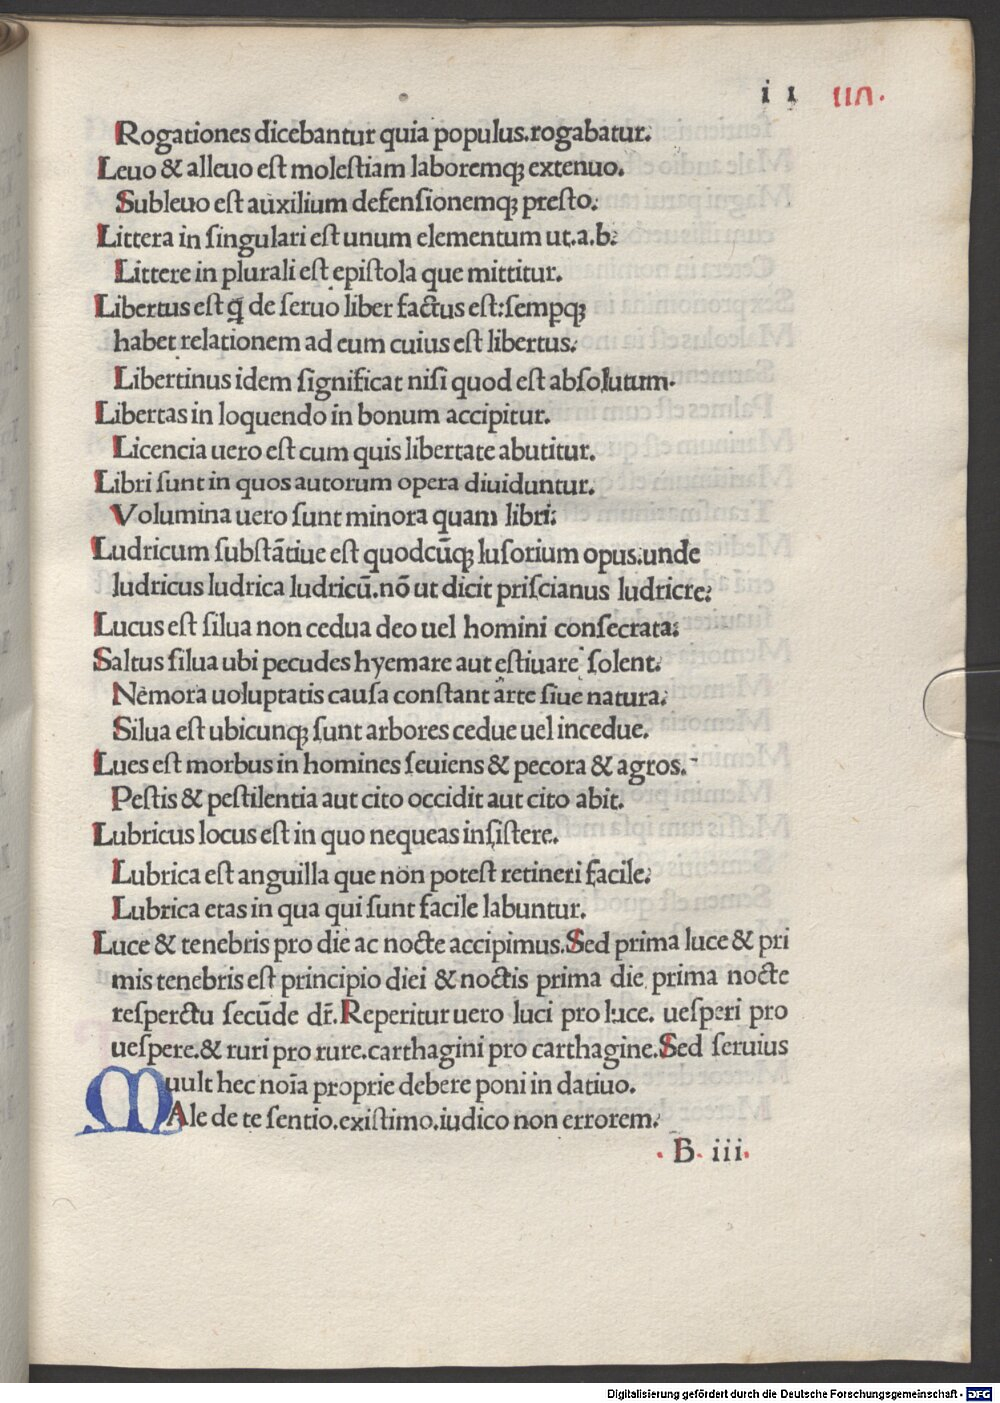 i i
Rogationes dicebantur quia populus.rogabatur.
Leuo & alleuo est molestiam laboremqꝫ extenuo.
Subleuo est auxilium defensionemqꝫ presto.
Littera in singulari est unum elementum ut.a.b.
Littere in plurali est epistola que mittitur.
Libertus est ꝗ de seruo liber factus est:sempqꝫ
habet relationem ad eum cuius est libertus.
Libertinus idem significat nisi quod est absolutum.
Libertas in loquendo in bonum accipitur.
Licencia uero est cum quis libertate abutitur.
Libri sunt in quos autorum opera diuiduntur.
Volumina uero sunt minora quam libri.
Ludricum substātiue est quodcūqꝫ lusorium opus.unde
ludricus ludrica ludricū.nō ut dicit priscianus ludricre.
Lucus est silua non cedua deo uel homini consecrata.
Saltus silua ubi pecudes hyemare aut estiuare solent.
Nemora uoluptatis causa constant arte siue natura.
Silua est ubicunqꝫ sunt arbores cedue uel incedue.
Lues est morbus in homines seuiens & pecora & agros.
Pestis & pestilentia aut cito occidit aut cito abit.
Lubricus locus est in quo nequeas insistere.
Lubrica est anguilla que non potest retineri facile.
Lubrica etas in qua qui sunt facile labuntur.
Luce & tenebris pro die ac nocte accipimus.Sed prima luce & pri
mis tenebris est principio diei & noctis prima die prima nocte
resperctu secūde dr̄.Reperitur uero luci pro luce. uesperi pro
uespere.& ruri pro rure.carthagini pro carthagine.Sed seruius
uult hec noīa proprie debere poni in datiuo.
MAle de te sentio.existimo.iudico non errorem.
.B. iii.
Digitalisierung gefördert durch die Deutsche Forschungsgemeinschaft - DFG